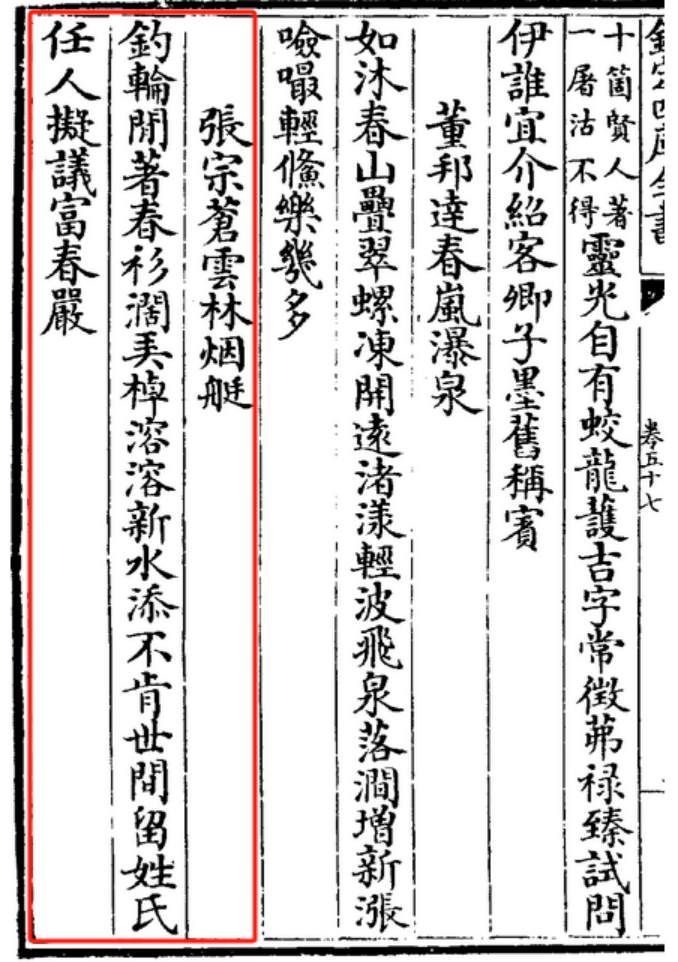 欽定四庫全書
卷五十七
十箇賢人著
一屠沽不得
靈光自有蛟龍護吉字常徴茀禄臻試問
伊誰宜介紹客卿子墨舊稱賓
董邦達春嵐瀑泉
如沐春山疊翠螺凍開逺渚漾輕波飛泉落澗增新漲
噞嘬輕鯈樂幾多
張宗蒼雲林烟艇
釣輪閒著春衫濶美棹溶溶新水添不肯世間留姓氏
任人擬議富春嚴